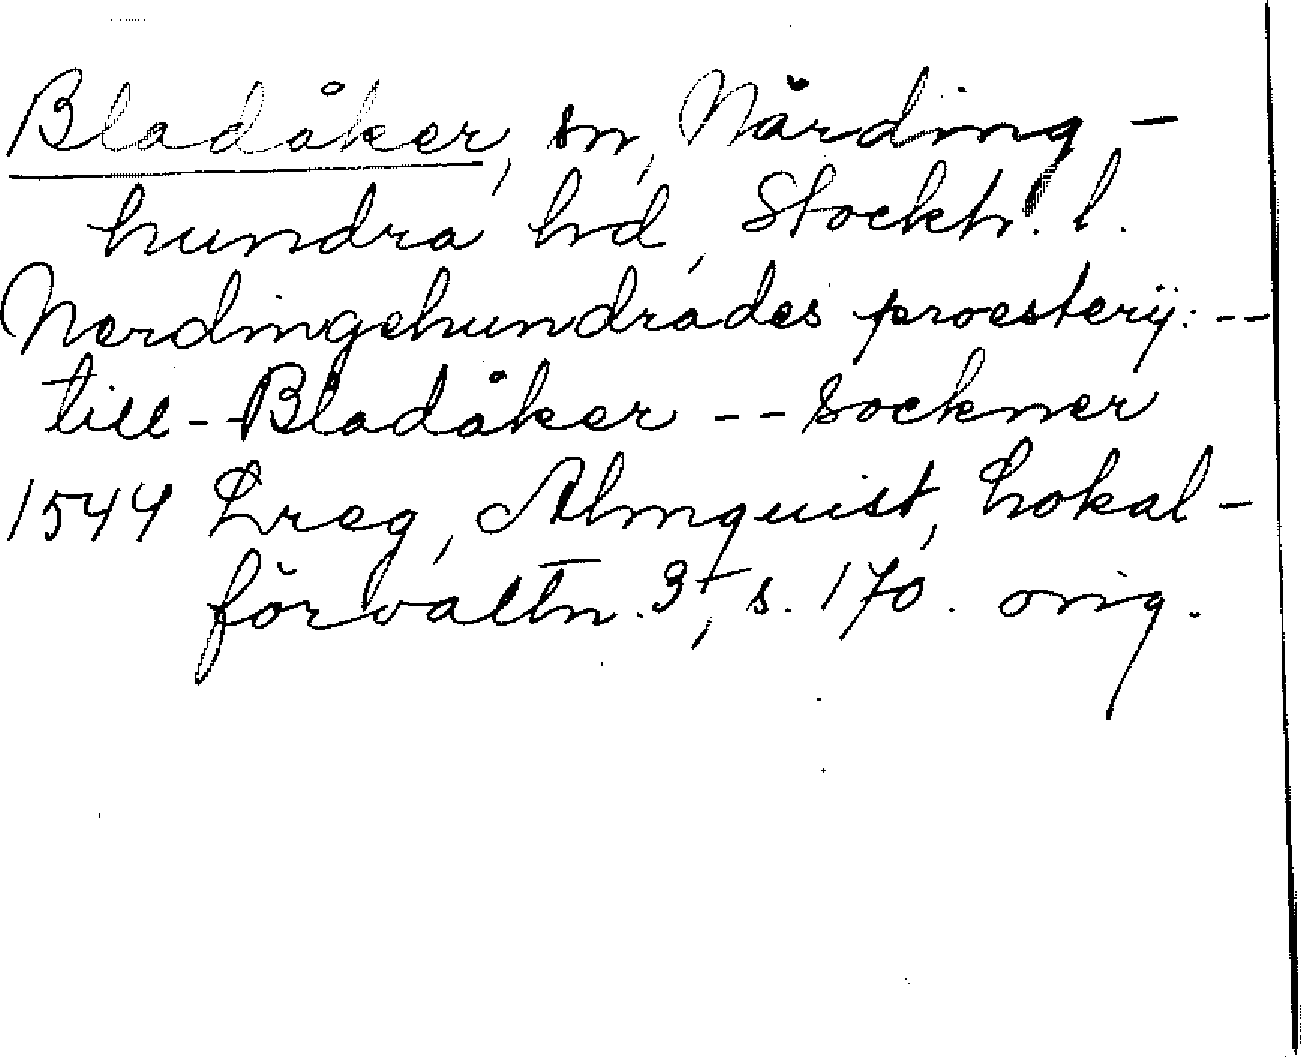 Bladåker, sn, Närding-
hundra hd, Stockh. l.
Nerdingehundrades proesterij: --
till - Bladåker -- sockner
1544 Lreg, Almquist, Lokal-
förvaltn. 3, s. 170. orig.